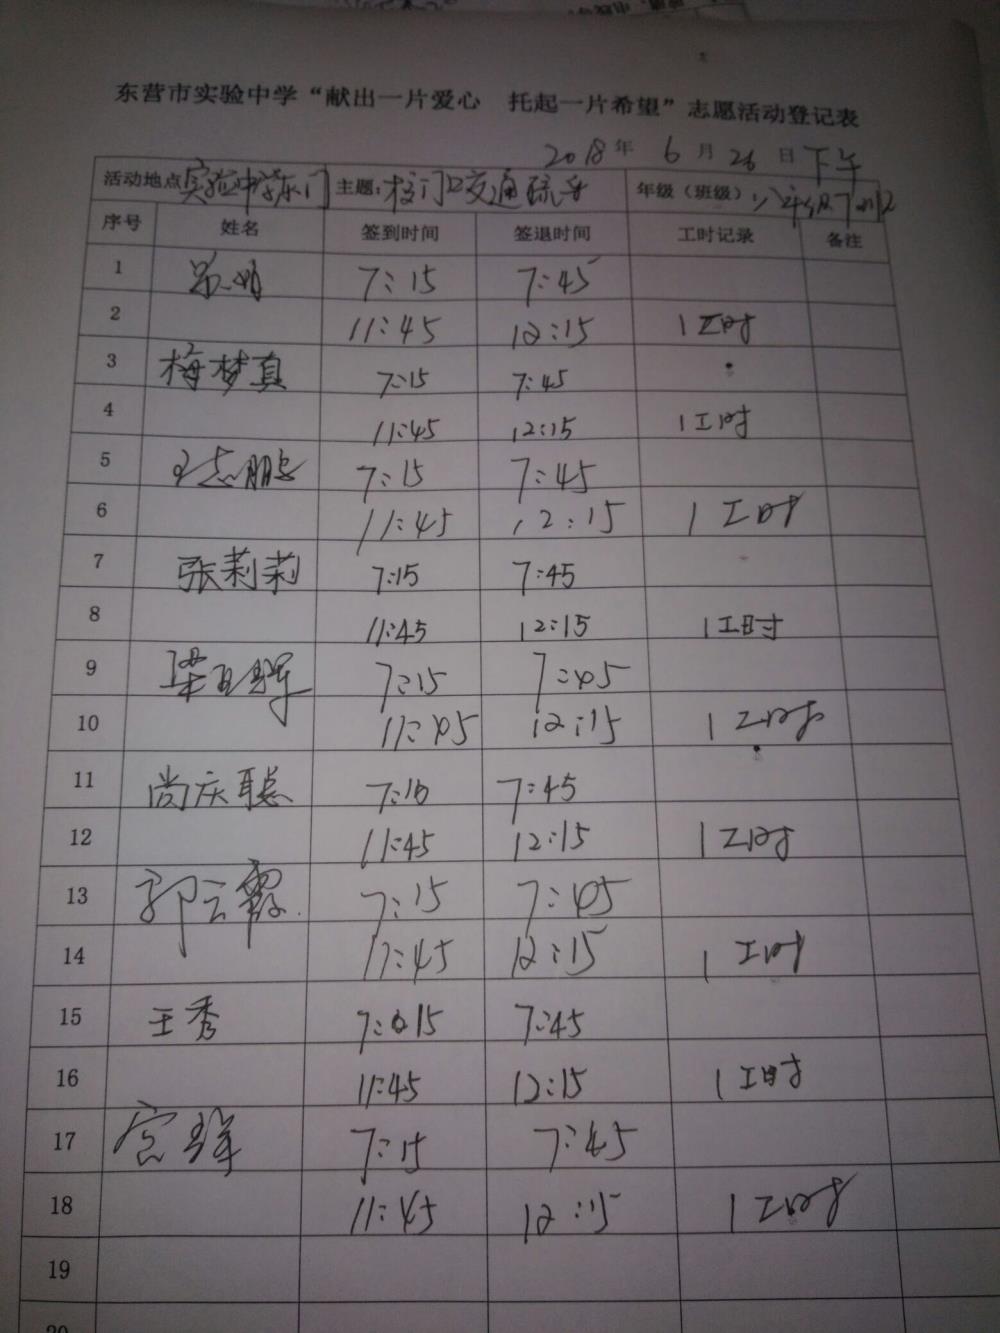 东营市实验中学“献出一片爱心 托起一片希望”志愿活动登记表
2018年 6月 26日下午
活动地点 实验中学东门 主题：校门口交通疏导 年级（班级）：
序号 姓名 签到时间 签退时间 工时记录 备注
1 7:15 7:45
2 11:45 12:15 1工时
3 梅梦真 7:15 7:45
4 11:45 12:15 1工时
5 王志鹏 7:15 7:45
6 11:45 12:15 1工时
7 张莉莉 7:15 7:45
8 11:45 12:15 1工时
9 7:15 7:45
10 11:45 12:15 1工时
11 尚庆聪 7:10 7:45
12 11:45 12:15 1工时
13 郭云霞 7:15 7:45
14 11:45 12:15 1工时
15 王秀 7:15 7:45
16 11:45 12:15 1工时
17 7:15 7:45
18 11:45 12:15 1工时
19
20